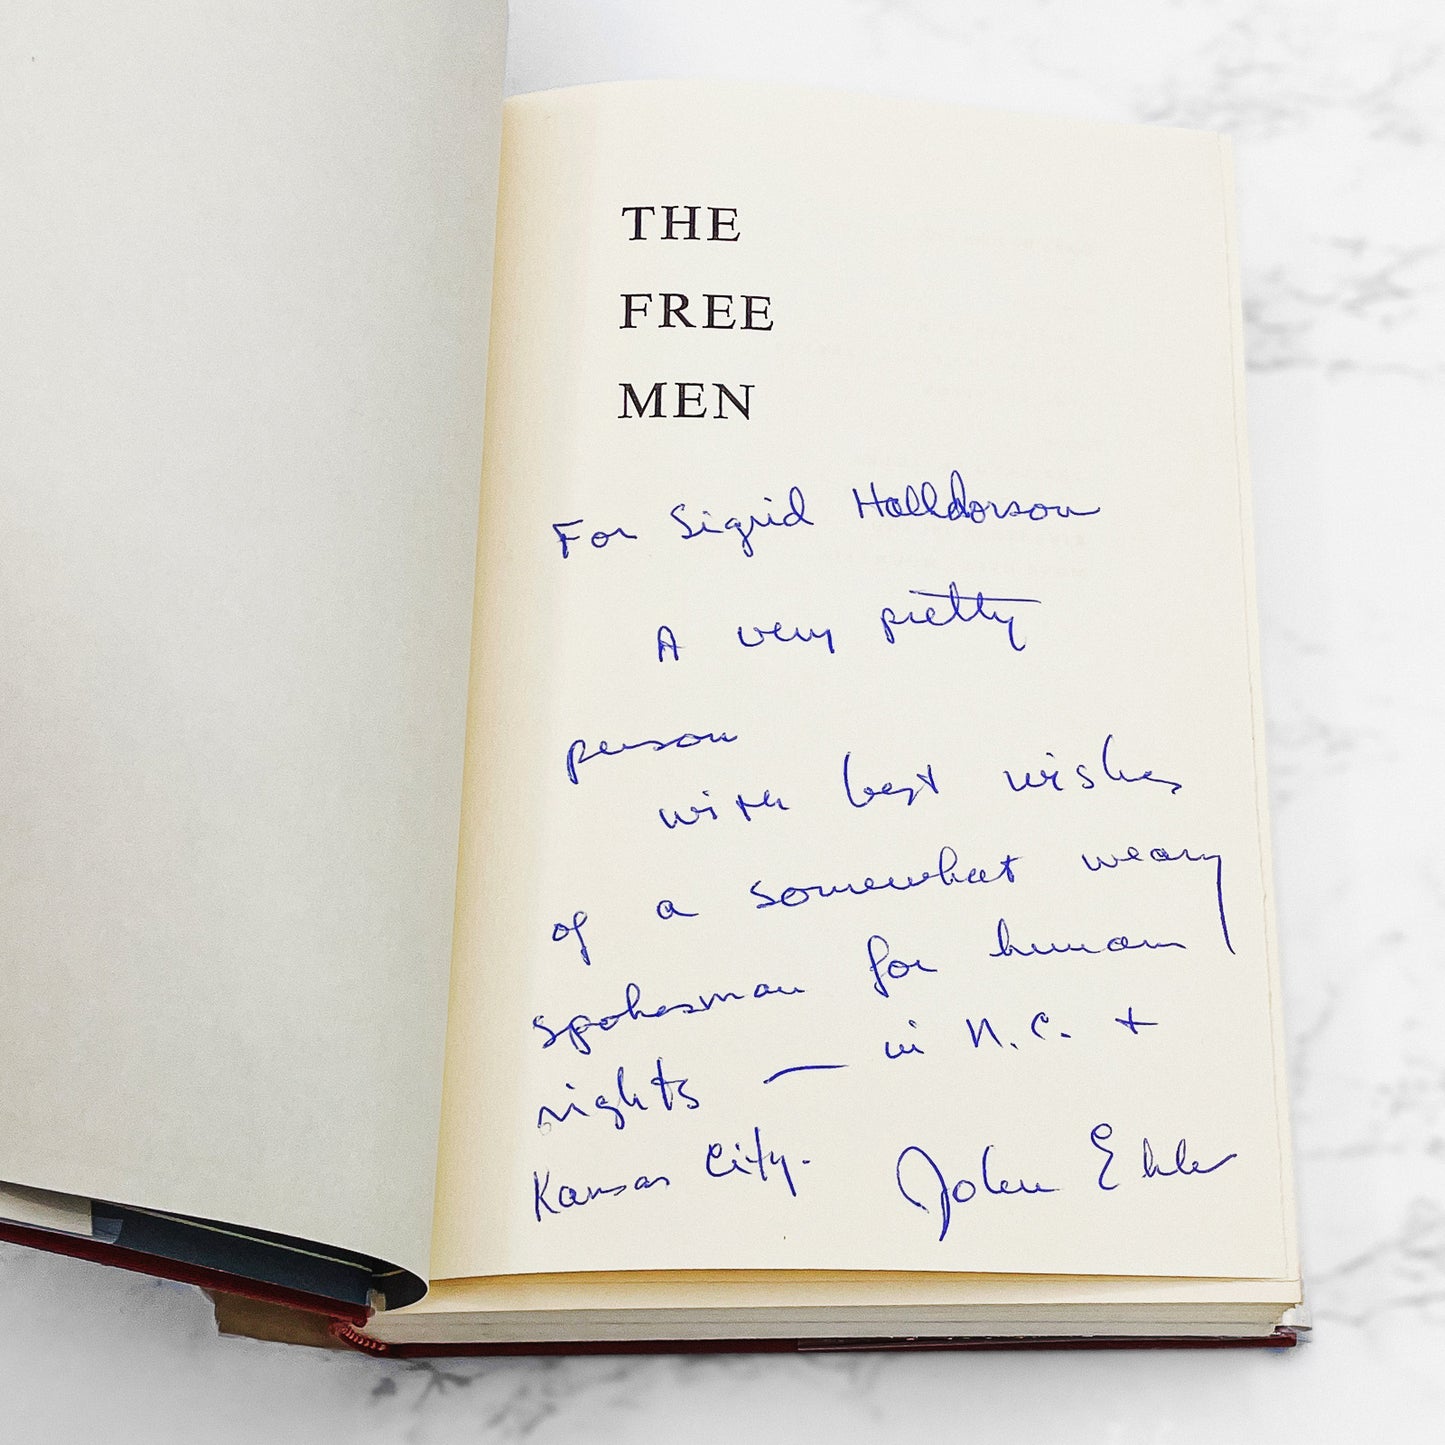 THE
FREE
MEN
For Sigrid Halldorson
A very pretty
person
with best wishes
of a somewhat weary
spokesman for human
rights — in N.C. +
Kansas City. John Ehle